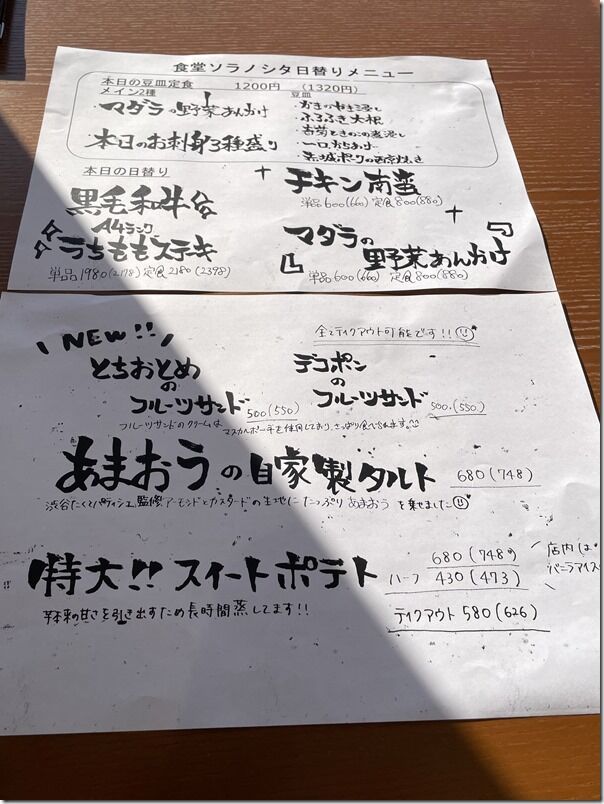 食堂ソラノシタ日替りメニュー
本日の豆皿定食 1200円 (1320円)
メイン2種
・マダラの野菜あんかけ
本日のお刺身3種盛り
豆皿
・かきのやき浸し
・ふろふき大根
・春菊ときのこの煮浸し
・一口からあげ
・茶城ポークの西京焼き
本日の日替り
黒毛和牛
A4ランク
うちももステキ
単品1980(2178) 定食2180(2398)
チキン南蛮
単品600(660) 定食800(880)
マダラの
野菜あんかけ
単品600(660) 定食800(880)
NEW!!
全てテイクアウト可能です!!
とちおとめ
の
フルーツサンド 500(550)
デコポン
の
フルーツサンド 500(550)
フルーツサンドのクリームはマスカルポーネを使用しており、さっぱり食べられます。
あまおうの自家製タルト 680(748)
渋谷たくとパティシエ監修、アーモンドとカスタードの生地にたっぷりあまおうを乗せました
特大!! スイートポテト
680(748)
ハーフ 430(473)
店内は
バニラアイス
テイクアウト 580(626)
芋本来の甘さを引き出すため長時間蒸してます!!